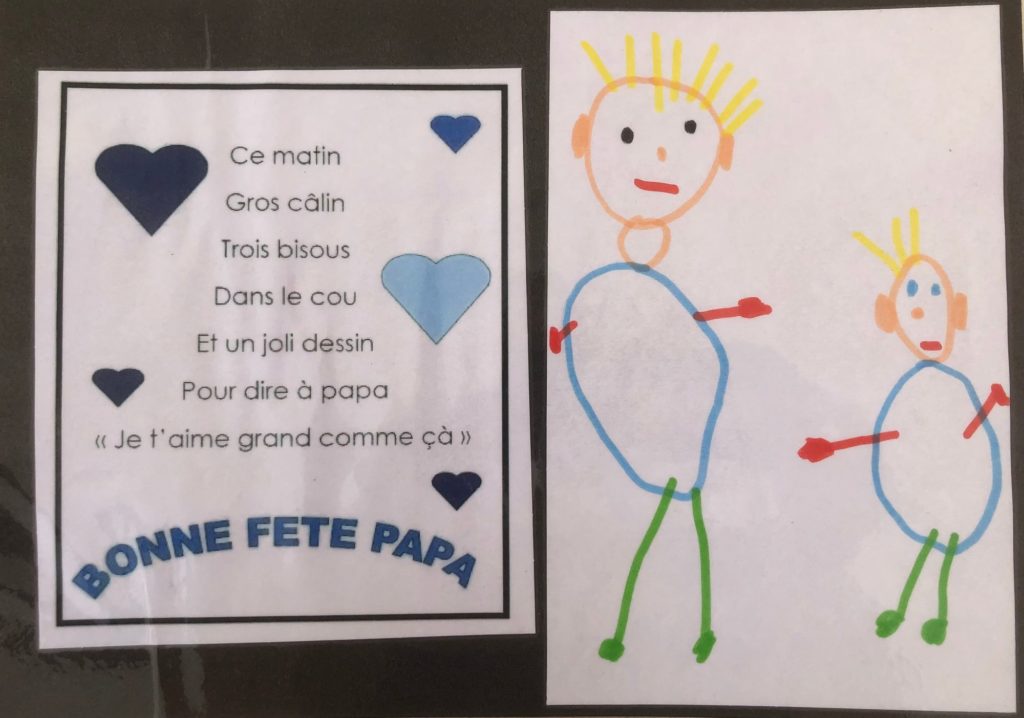 Ce matin
Gros câlin
Trois bisous
Dans le cou
Et un joli dessin
Pour dire à papa
« Je t'aime grand comme çà »
BONNE FETE PAPA